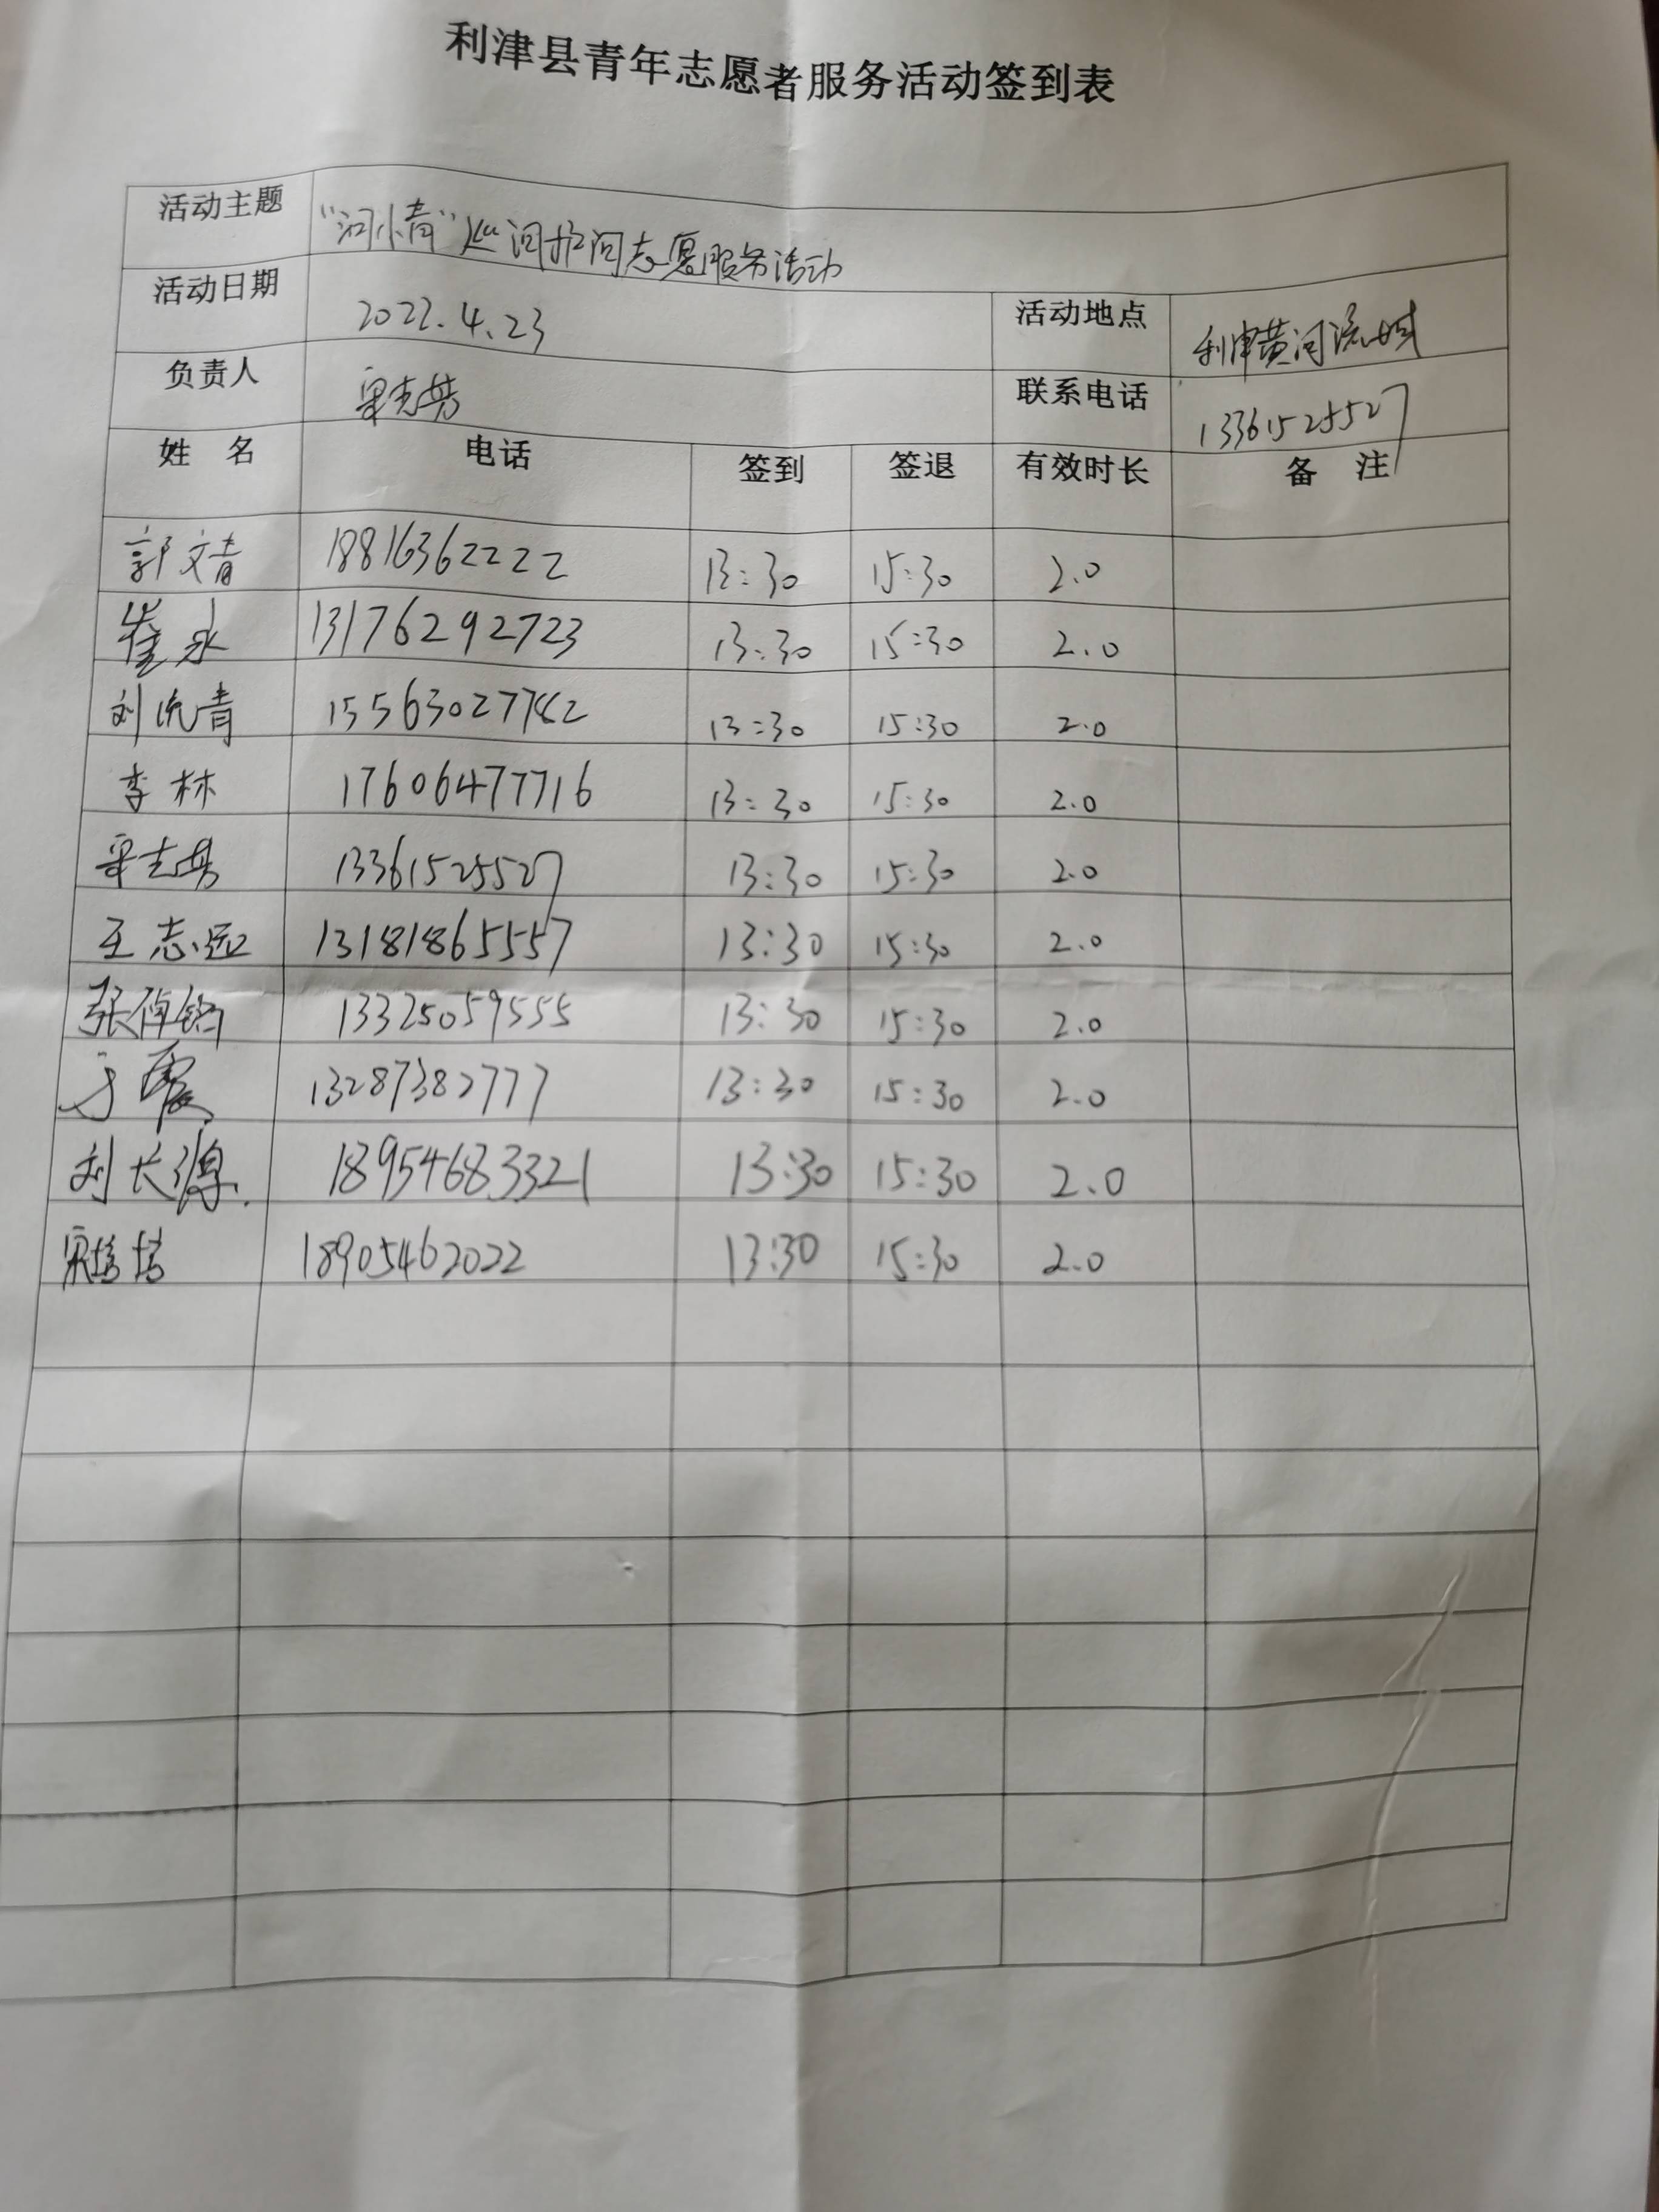 利津县青年志愿者服务活动签到表
活动主题 "河小青"巡河护河志愿服务活动
活动日期 2022.4.23 活动地点 利津黄河流域
负责人 联系电话 13361525527
姓 名 电话 签到 签退 有效时长 备 注
郭文青 18816362222 13:30 15:30 2.0
崔永 13176292723 13:30 15:30 2.0
刘沅青 155630277 13:30 15:30 2.0
李林 17606477716 13:30 15:30 2.0
13361525527 13:30 15:30 2.0
王志远 13181865557 13:30 15:30 2.0
张倬铭 13325059555 13:30 15:30 2.0
于震 13287382777 13:30 15:30 2.0
刘长源 18954683321 13:30 15:30 2.0
宋培培 18905462022 13:30 15:30 2.0